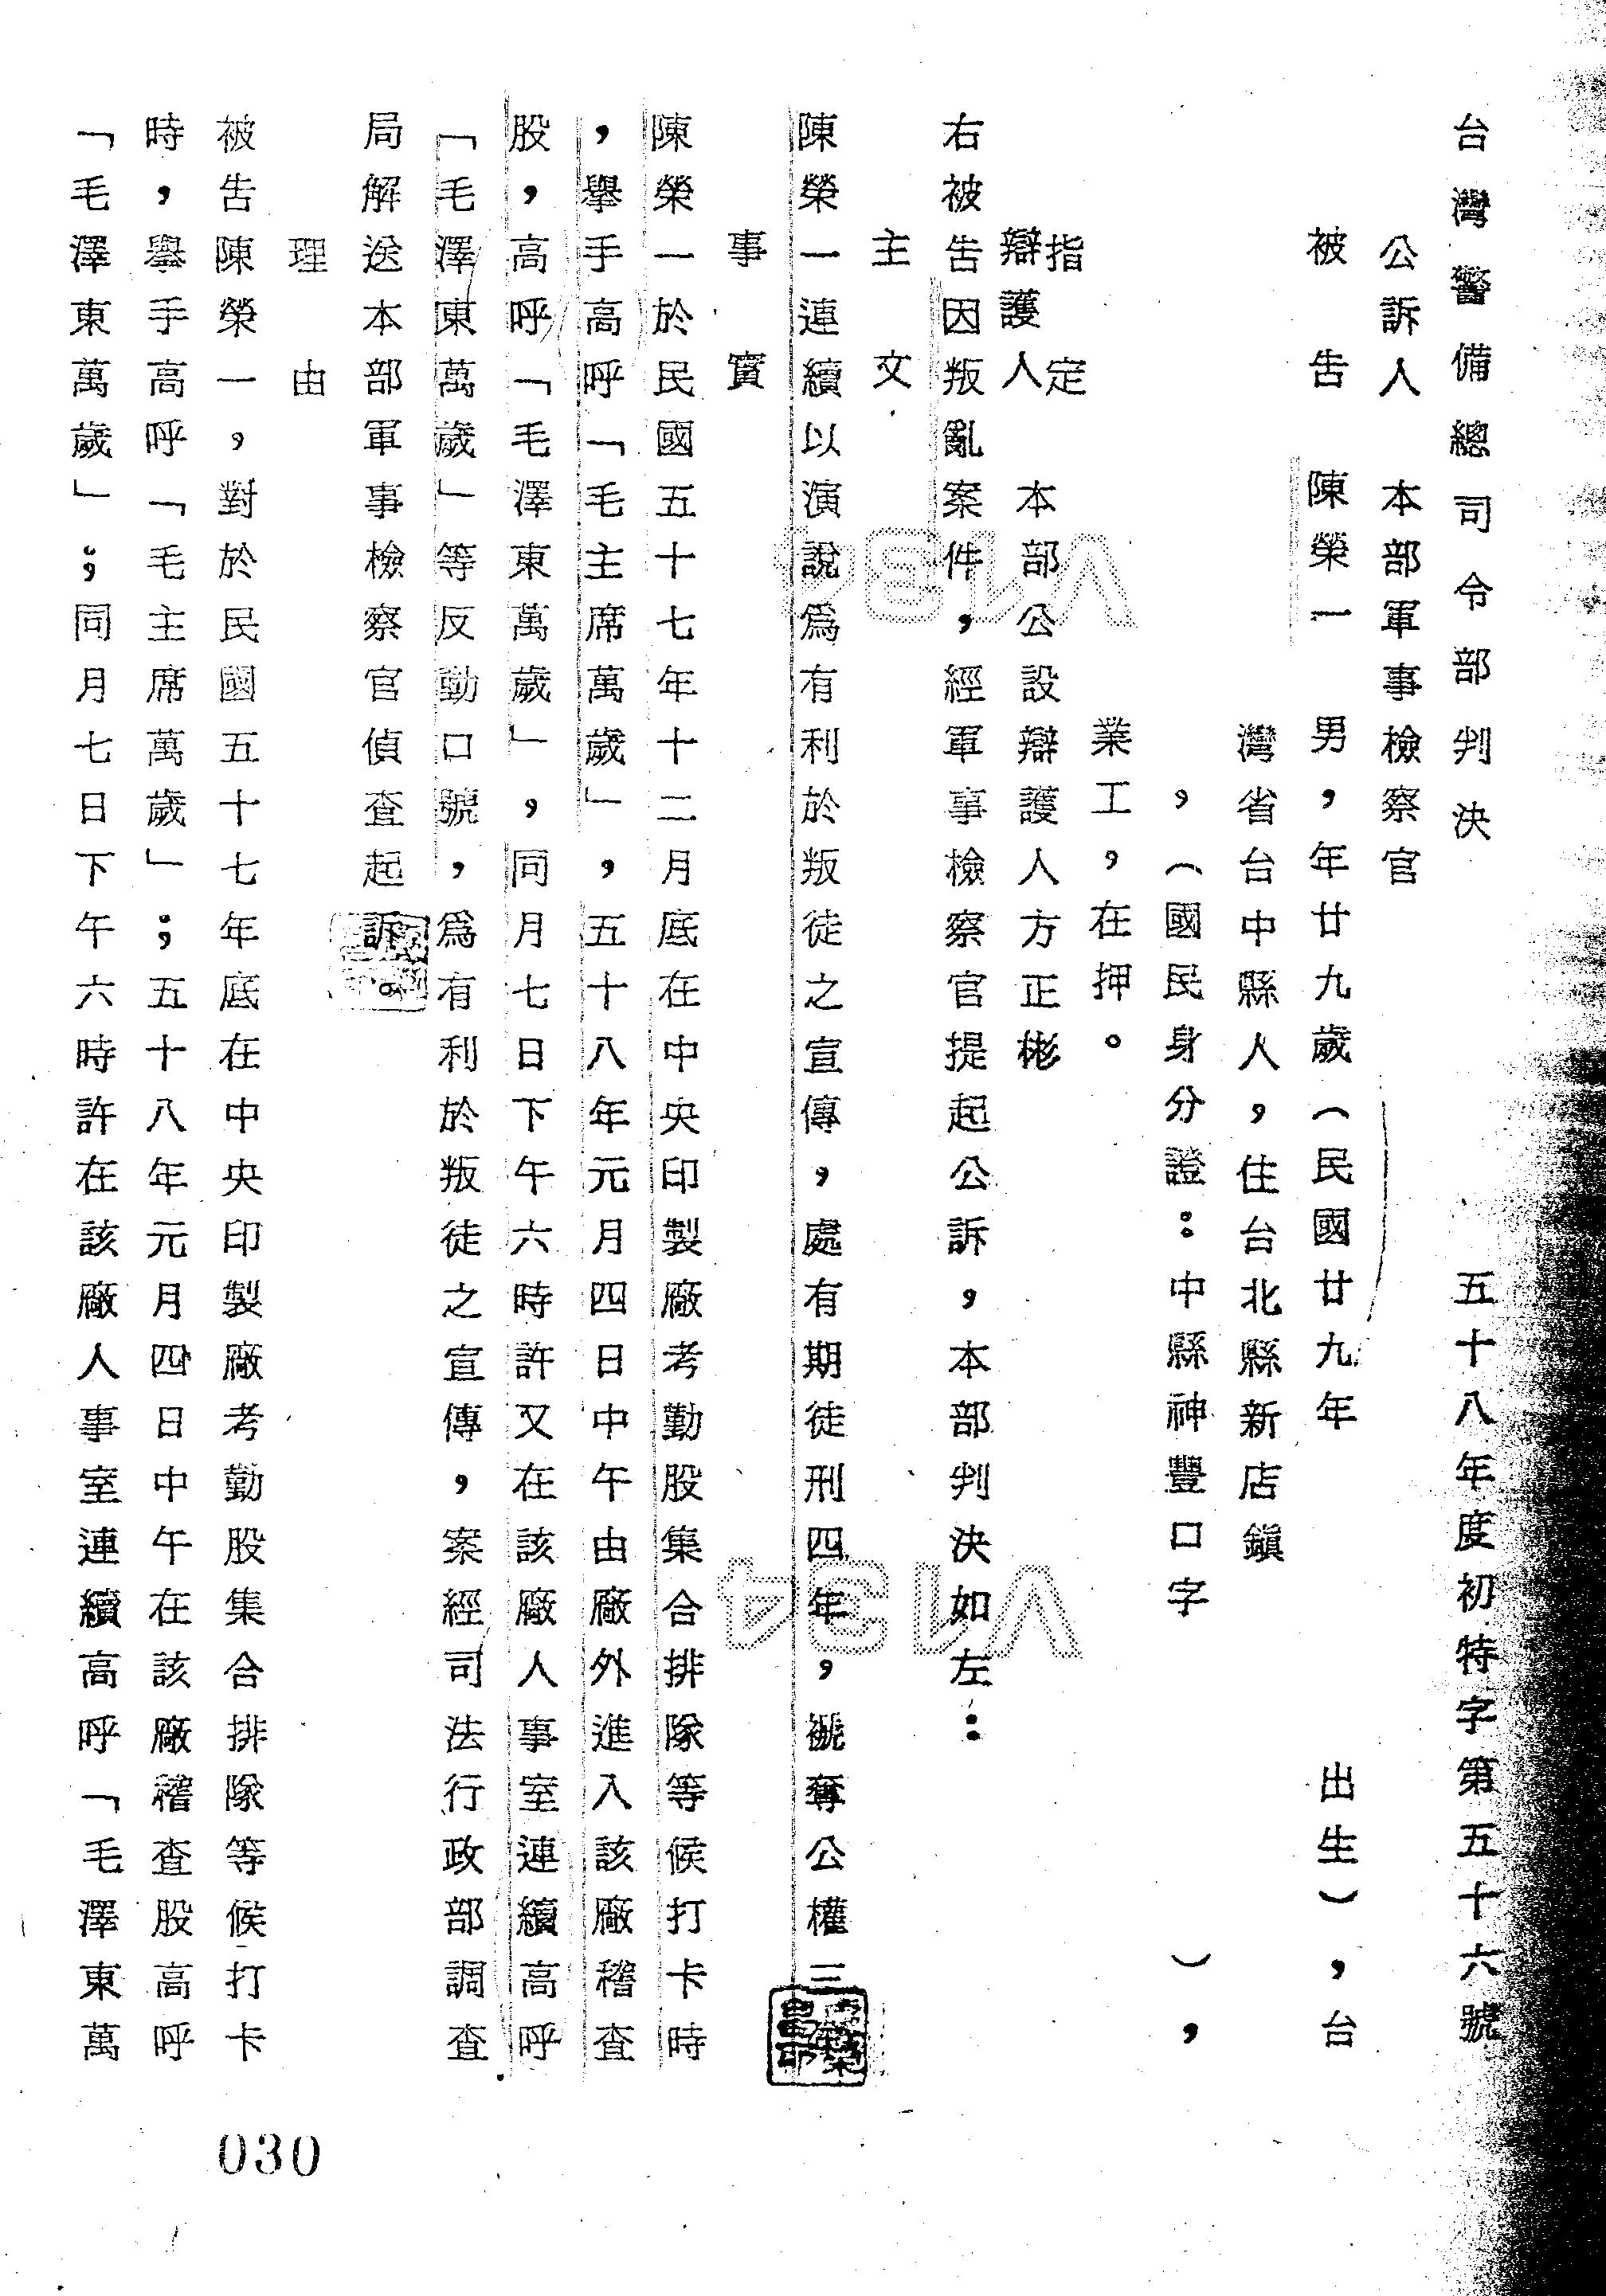 台灣警備總司令部判決
五十八年度初特字第五十六號
公訴人　本部軍事檢察官
被告　陳榮一　男，年廿九歲（民國廿九年　出生），台
灣省台中縣人，住台北縣新店鎮
，（國民身分證：中縣神豐口字　），
業工，在押。
指定
辯護人　本部公設辯護人方正彬
右被告因叛亂案件，經軍事檢察官提起公訴，本部判決如左：
主文
陳榮一連續以演說為有利於叛徒之宣傳，處有期徒刑四年，褫奪公權三
事實
陳榮一於民國五十七年十二月底在中央印製廠考勤股集合排隊等候打卡時
，舉手高呼「毛主席萬歲」，五十八年元月四日中午由廠外進入該廠稽查
股，高呼「毛澤東萬歲」，同月七日下午六時許又在該廠人事室連續高呼
「毛澤東萬歲」等反動口號，為有利於叛徒之宣傳，案經司法行政部調查
局解送本部軍事檢察官偵查起訴。
理由
被告陳榮一，對於民國五十七年底在中央印製廠考勤股集合排隊等候打卡
時，舉手高呼「毛主席萬歲」；五十八年元月四日中午在該廠稽查股高呼
「毛澤東萬歲」；同月七日下午六時許在該廠人事室連續高呼「毛澤東萬
V134
V134
030